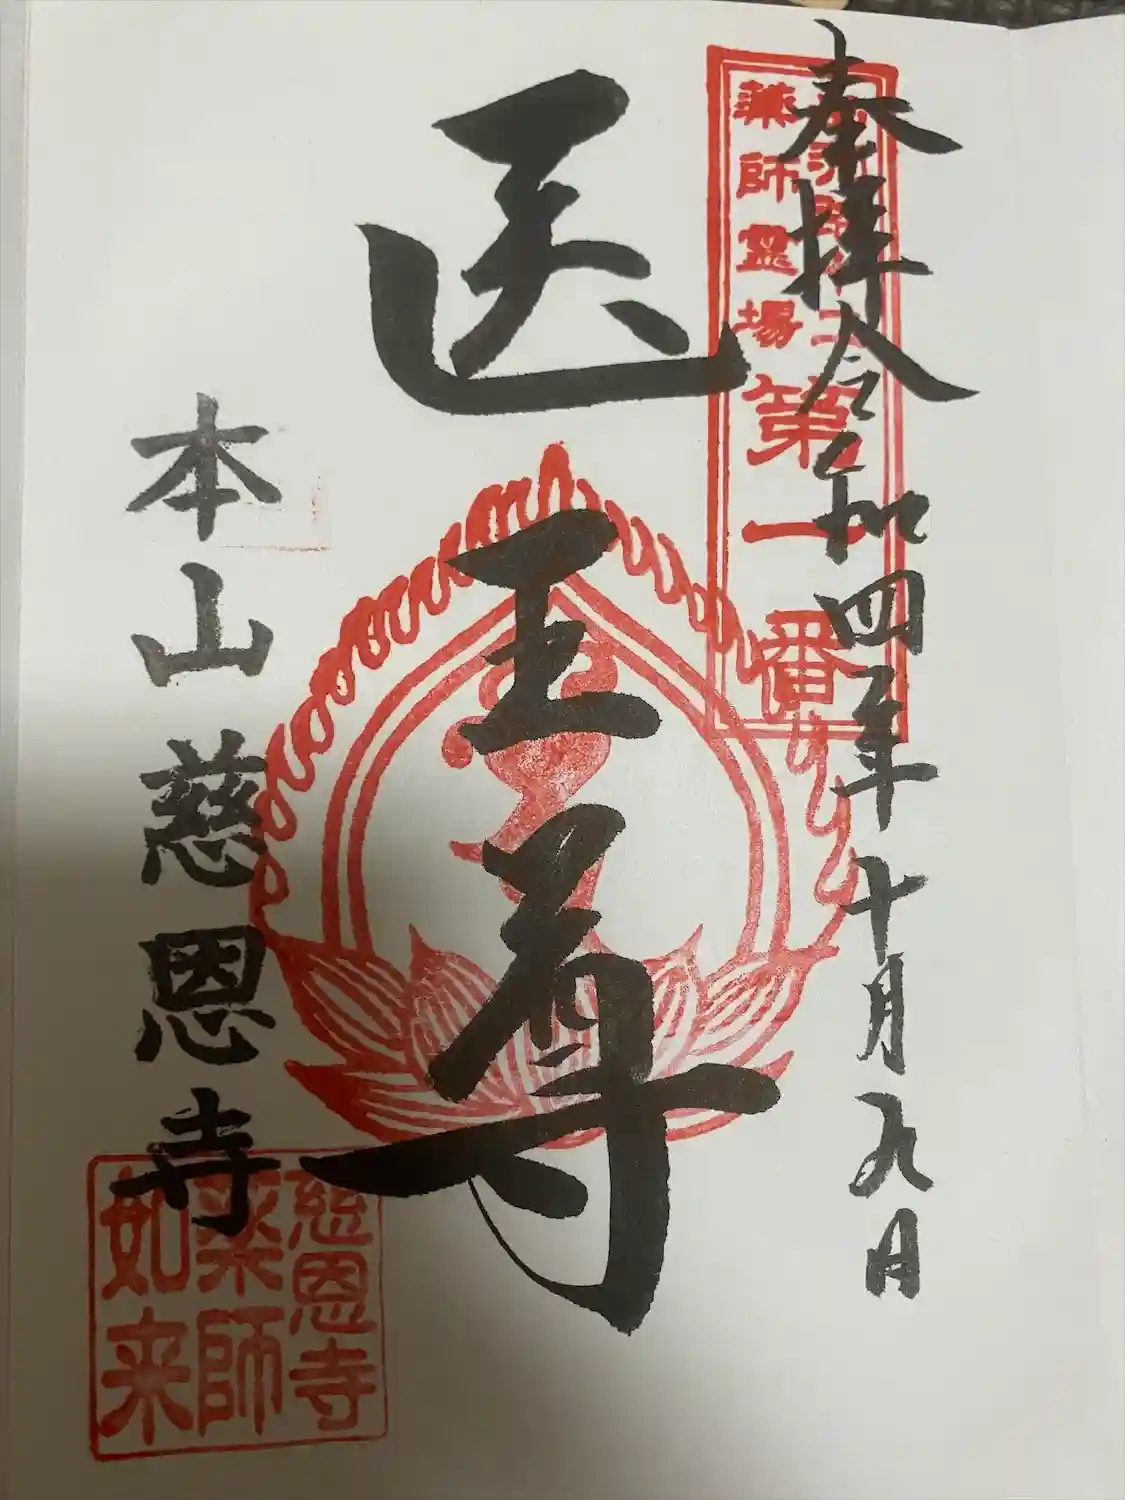 奉拝令和四年十月九日
薬師霊場第一番
医王尊
本山慈恩寺
慈恩寺
薬師
如来